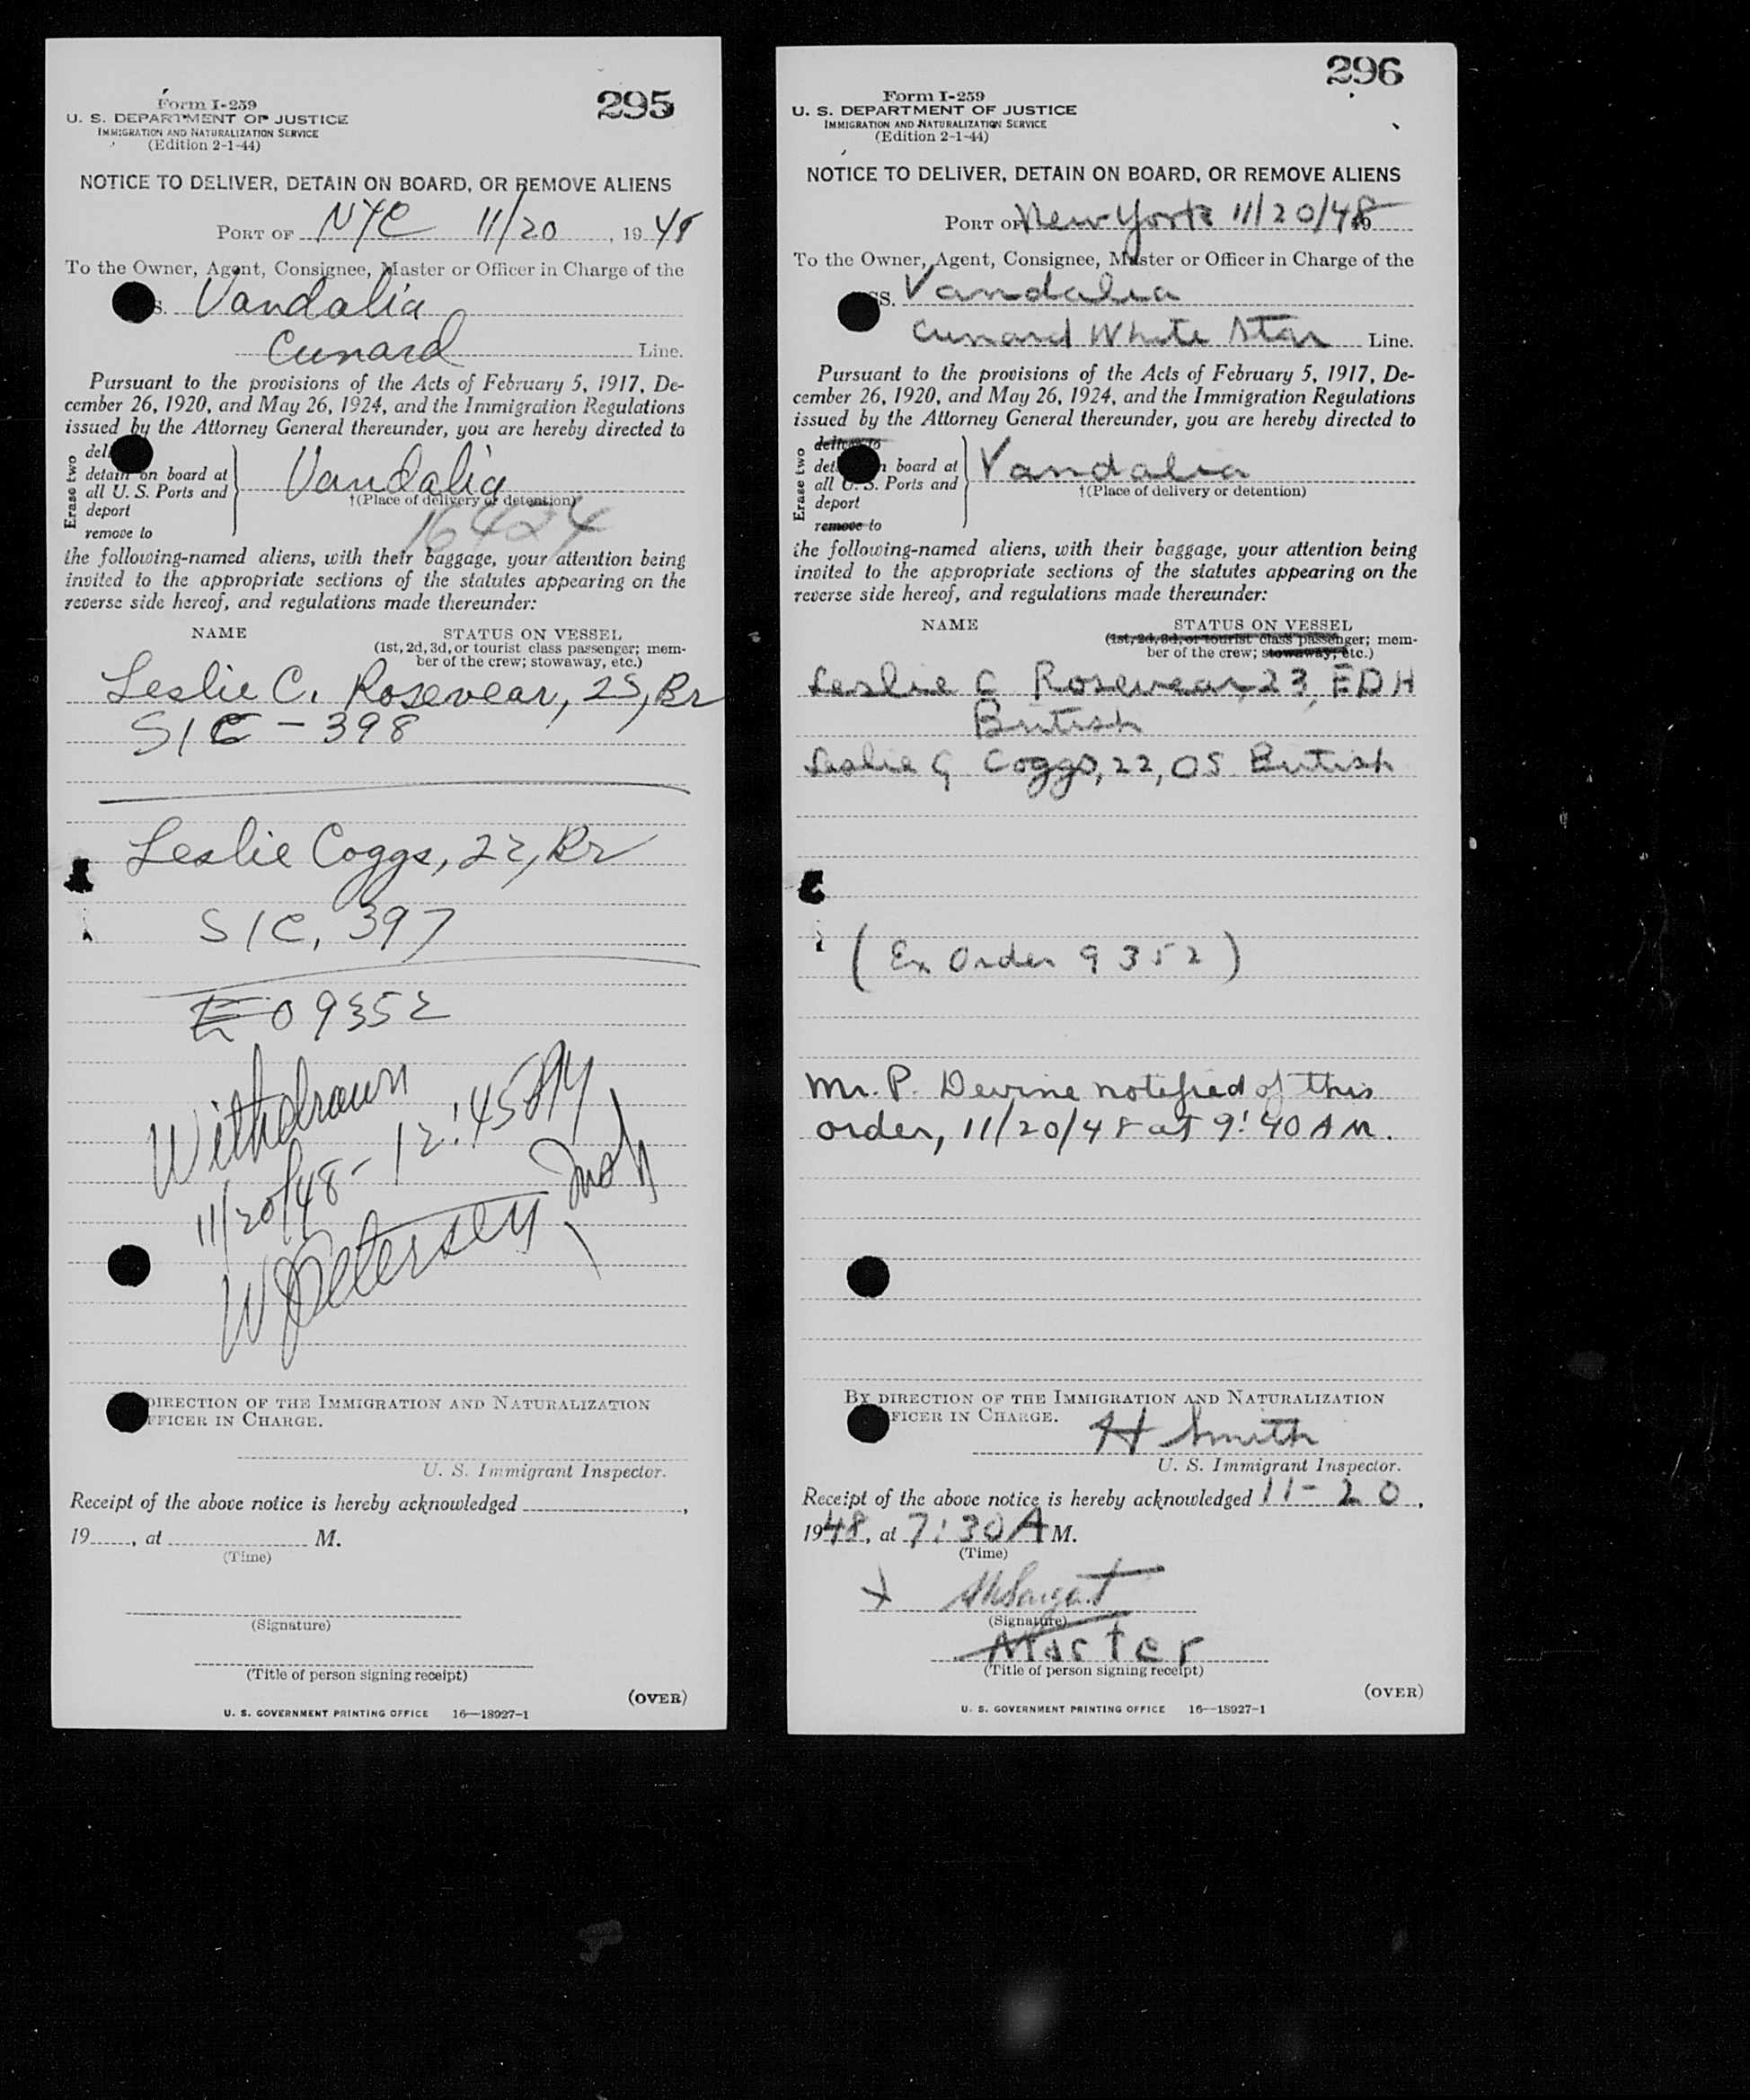 295
Form I-259
U. S. DEPARTMENT OF JUSTICE
IMMIGRATION AND NATURALIZATION SERVICE
(Edition 2-1-44)
NOTICE TO DELIVER, DETAIN ON BOARD, OR REMOVE ALIENS
PORT OF NYC 11/20, 1948
To the Owner, Agent, Consignee, Master or Officer in Charge of the
S. Vandalia
Cunard Line.
Pursuant to the provisions of the Acts of February 5, 1917, De-
cember 26, 1920, and May 26, 1924, and the Immigration Regulations
issued by the Attorney General thereunder, you are hereby directed to
Erase two
del
detain on board at
all U. S. Ports and
deport
remove to
Vandalia
†(Place of delivery or detention)
16424
the following-named aliens, with their baggage, your attention being
invited to the appropriate sections of the statutes appearing on the
reverse side hereof, and regulations made thereunder:
NAME STATUS ON VESSEL
(1st, 2d, 3d, or tourist class passenger; mem-
ber of the crew; stowaway, etc.)
Leslie C. Rosevear, 25, Br
S/C - 398
Leslie Coggs, 22, Br
S/C, 397
E O 9352
Withdrawn
11/20/48 - 12:45 PM
W Petersen
DIRECTION OF THE IMMIGRATION AND NATURALIZATION
FFICER IN CHARGE.
U. S. Immigrant Inspector.
Receipt of the above notice is hereby acknowledged ,
19 , at M.
(Time)
(Signature)
(Title of person signing receipt)
(OVER)
U. S. GOVERNMENT PRINTING OFFICE 16—18927-1
296
Form I-259
U. S. DEPARTMENT OF JUSTICE
IMMIGRATION AND NATURALIZATION SERVICE
(Edition 2-1-44)
NOTICE TO DELIVER, DETAIN ON BOARD, OR REMOVE ALIENS
PORT OF New York 11/20/48
To the Owner, Agent, Consignee, Master or Officer in Charge of the
SS. Vandalia
Cunard White Star Line.
Pursuant to the provisions of the Acts of February 5, 1917, De-
cember 26, 1920, and May 26, 1924, and the Immigration Regulations
issued by the Attorney General thereunder, you are hereby directed to
Erase two
deliver to
det n board at
all U. S. Ports and
deport
remove to
Vandalia
†(Place of delivery or detention)
the following-named aliens, with their baggage, your attention being
invited to the appropriate sections of the statutes appearing on the
reverse side hereof, and regulations made thereunder:
NAME STATUS ON VESSEL
(1st, 2d, 3d, or tourist class passenger; mem-
ber of the crew; stowaway, etc.)
Leslie C Rosevear, 23, EDH
British
Leslie G Coggs, 22, OS British
(Ex Order 9352)
Mr. P. Devine notified of this
order, 11/20/48 at 9:40 AM.
BY DIRECTION OF THE IMMIGRATION AND NATURALIZATION
FICER IN CHARGE.
H Smith
U. S. Immigrant Inspector.
Receipt of the above notice is hereby acknowledged 11-20,
1948, at 7:30 A M.
(Time)
x
(Signature)
Master
(Title of person signing receipt)
(OVER)
U. S. GOVERNMENT PRINTING OFFICE 16—18927-1